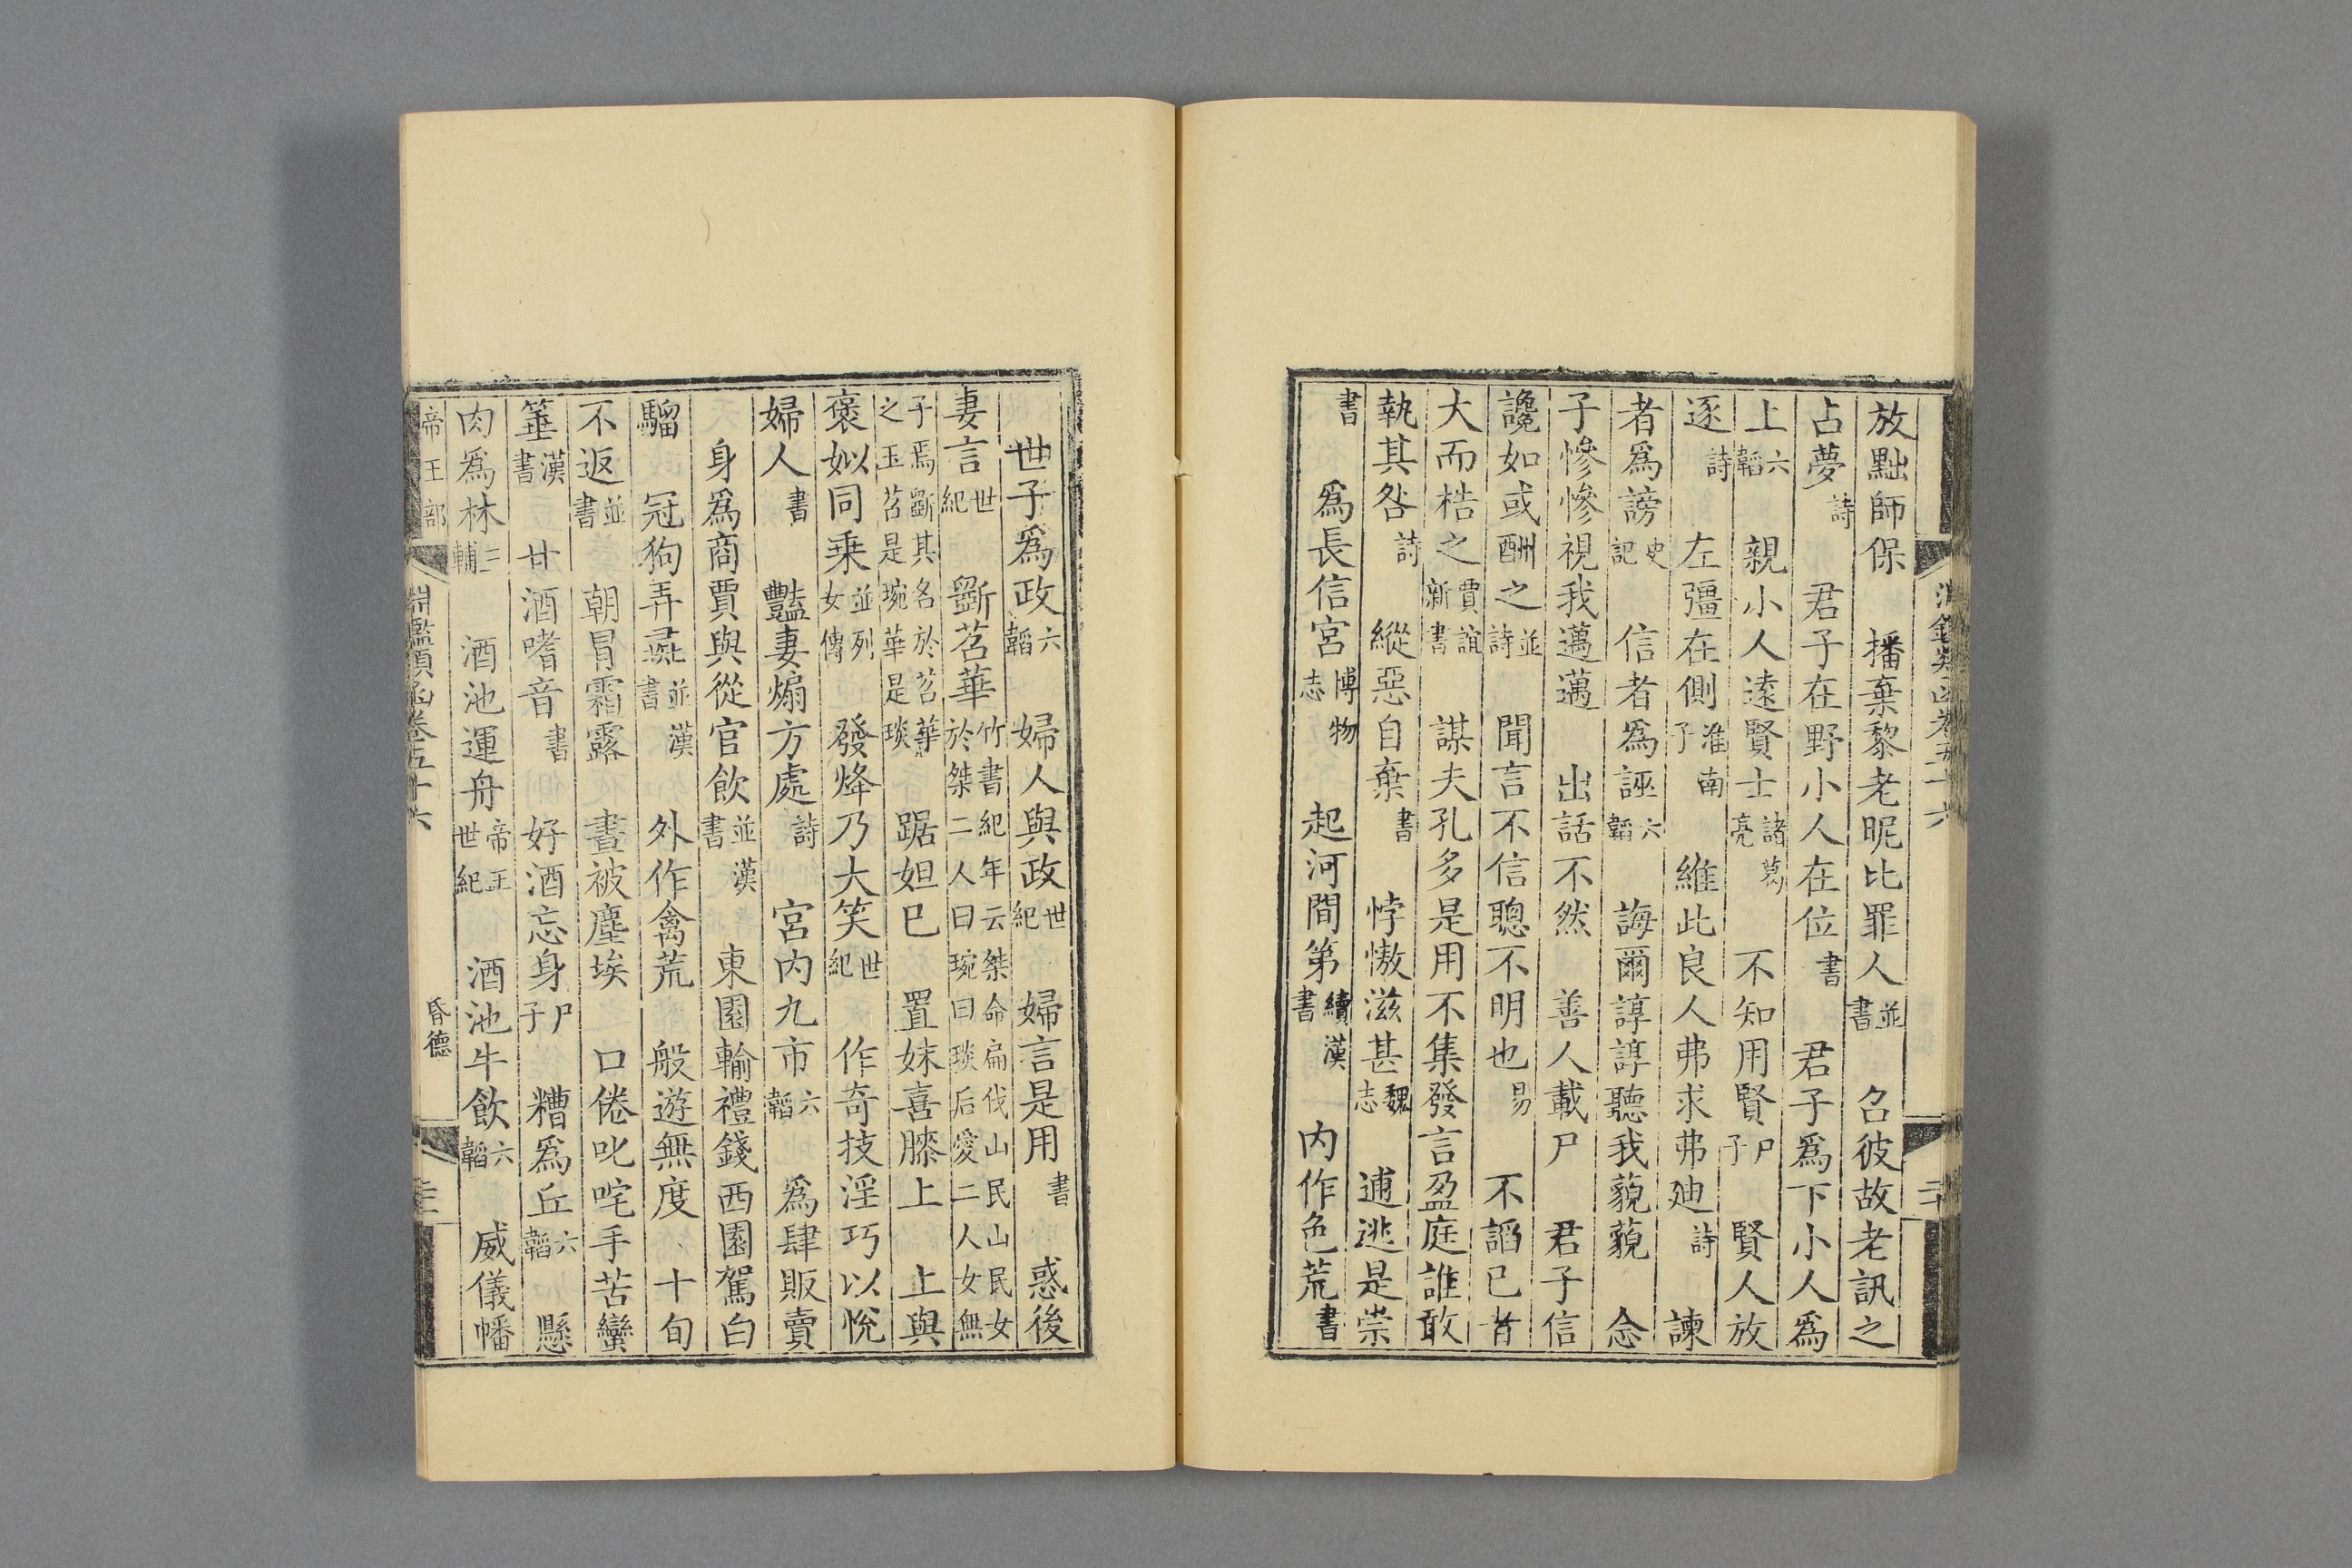 放黜師保　播棄黎老昵比罪人並書　召彼故老訊之
占夢詩　君子在野小人在位書　君子爲下小人爲
上六韜　親小人遠賢士諸葛亮　不知用賢尸子　賢人放
逐詩　左彊在側淮南子　維此良人弗求弗廸詩　諫
者爲謗史記　信者爲誣六韜　誨爾諄諄聽我藐藐　念
子慘慘視我邁邁　出話不然　善人載尸　君子信
讒如或酬之並詩　聞言不信聰不明也易　不謟已者
大而梏之賈誼新書　謀夫孔多是用不集發言盈庭誰敢
執其咎詩　縱惡自棄書　悖慠滋甚魏志　逋逃是崇
書　爲長信宮博物志　起河間第續漢書　内作色荒書
世子爲政六韜　婦人與政世紀　婦言是用書　惑後
妻言世紀　斵苕華竹書紀年云桀命扁伐山民山民女於桀二人曰琬曰琰后愛二人女無
子焉斵其名於苕華之玉苕是琬華是琰　踞妲已　置妺喜膝上　止與
褒姒同乗並列女傳　發烽乃大笑世紀　作奇技淫巧以悅
婦人書　豔妻煽方處詩　宮内九市六韜　爲肆販賣
身爲商賈與從官飲並漢書　東園輸禮錢西園駕白
騮　冠狗弄燕並漢書　外作禽荒　般遊無度　十旬
不返並書　朝冒霜露　晝被塵埃　口倦叱咤手苦
箠漢書　甘酒嗜音書　好酒忘身尸子　糟爲丘六韜　懸
肉爲林三輔　酒池運舟帝王世紀　酒池牛飲六韜　威儀幡
帝王部　淵鑑類函卷五十六　昏德